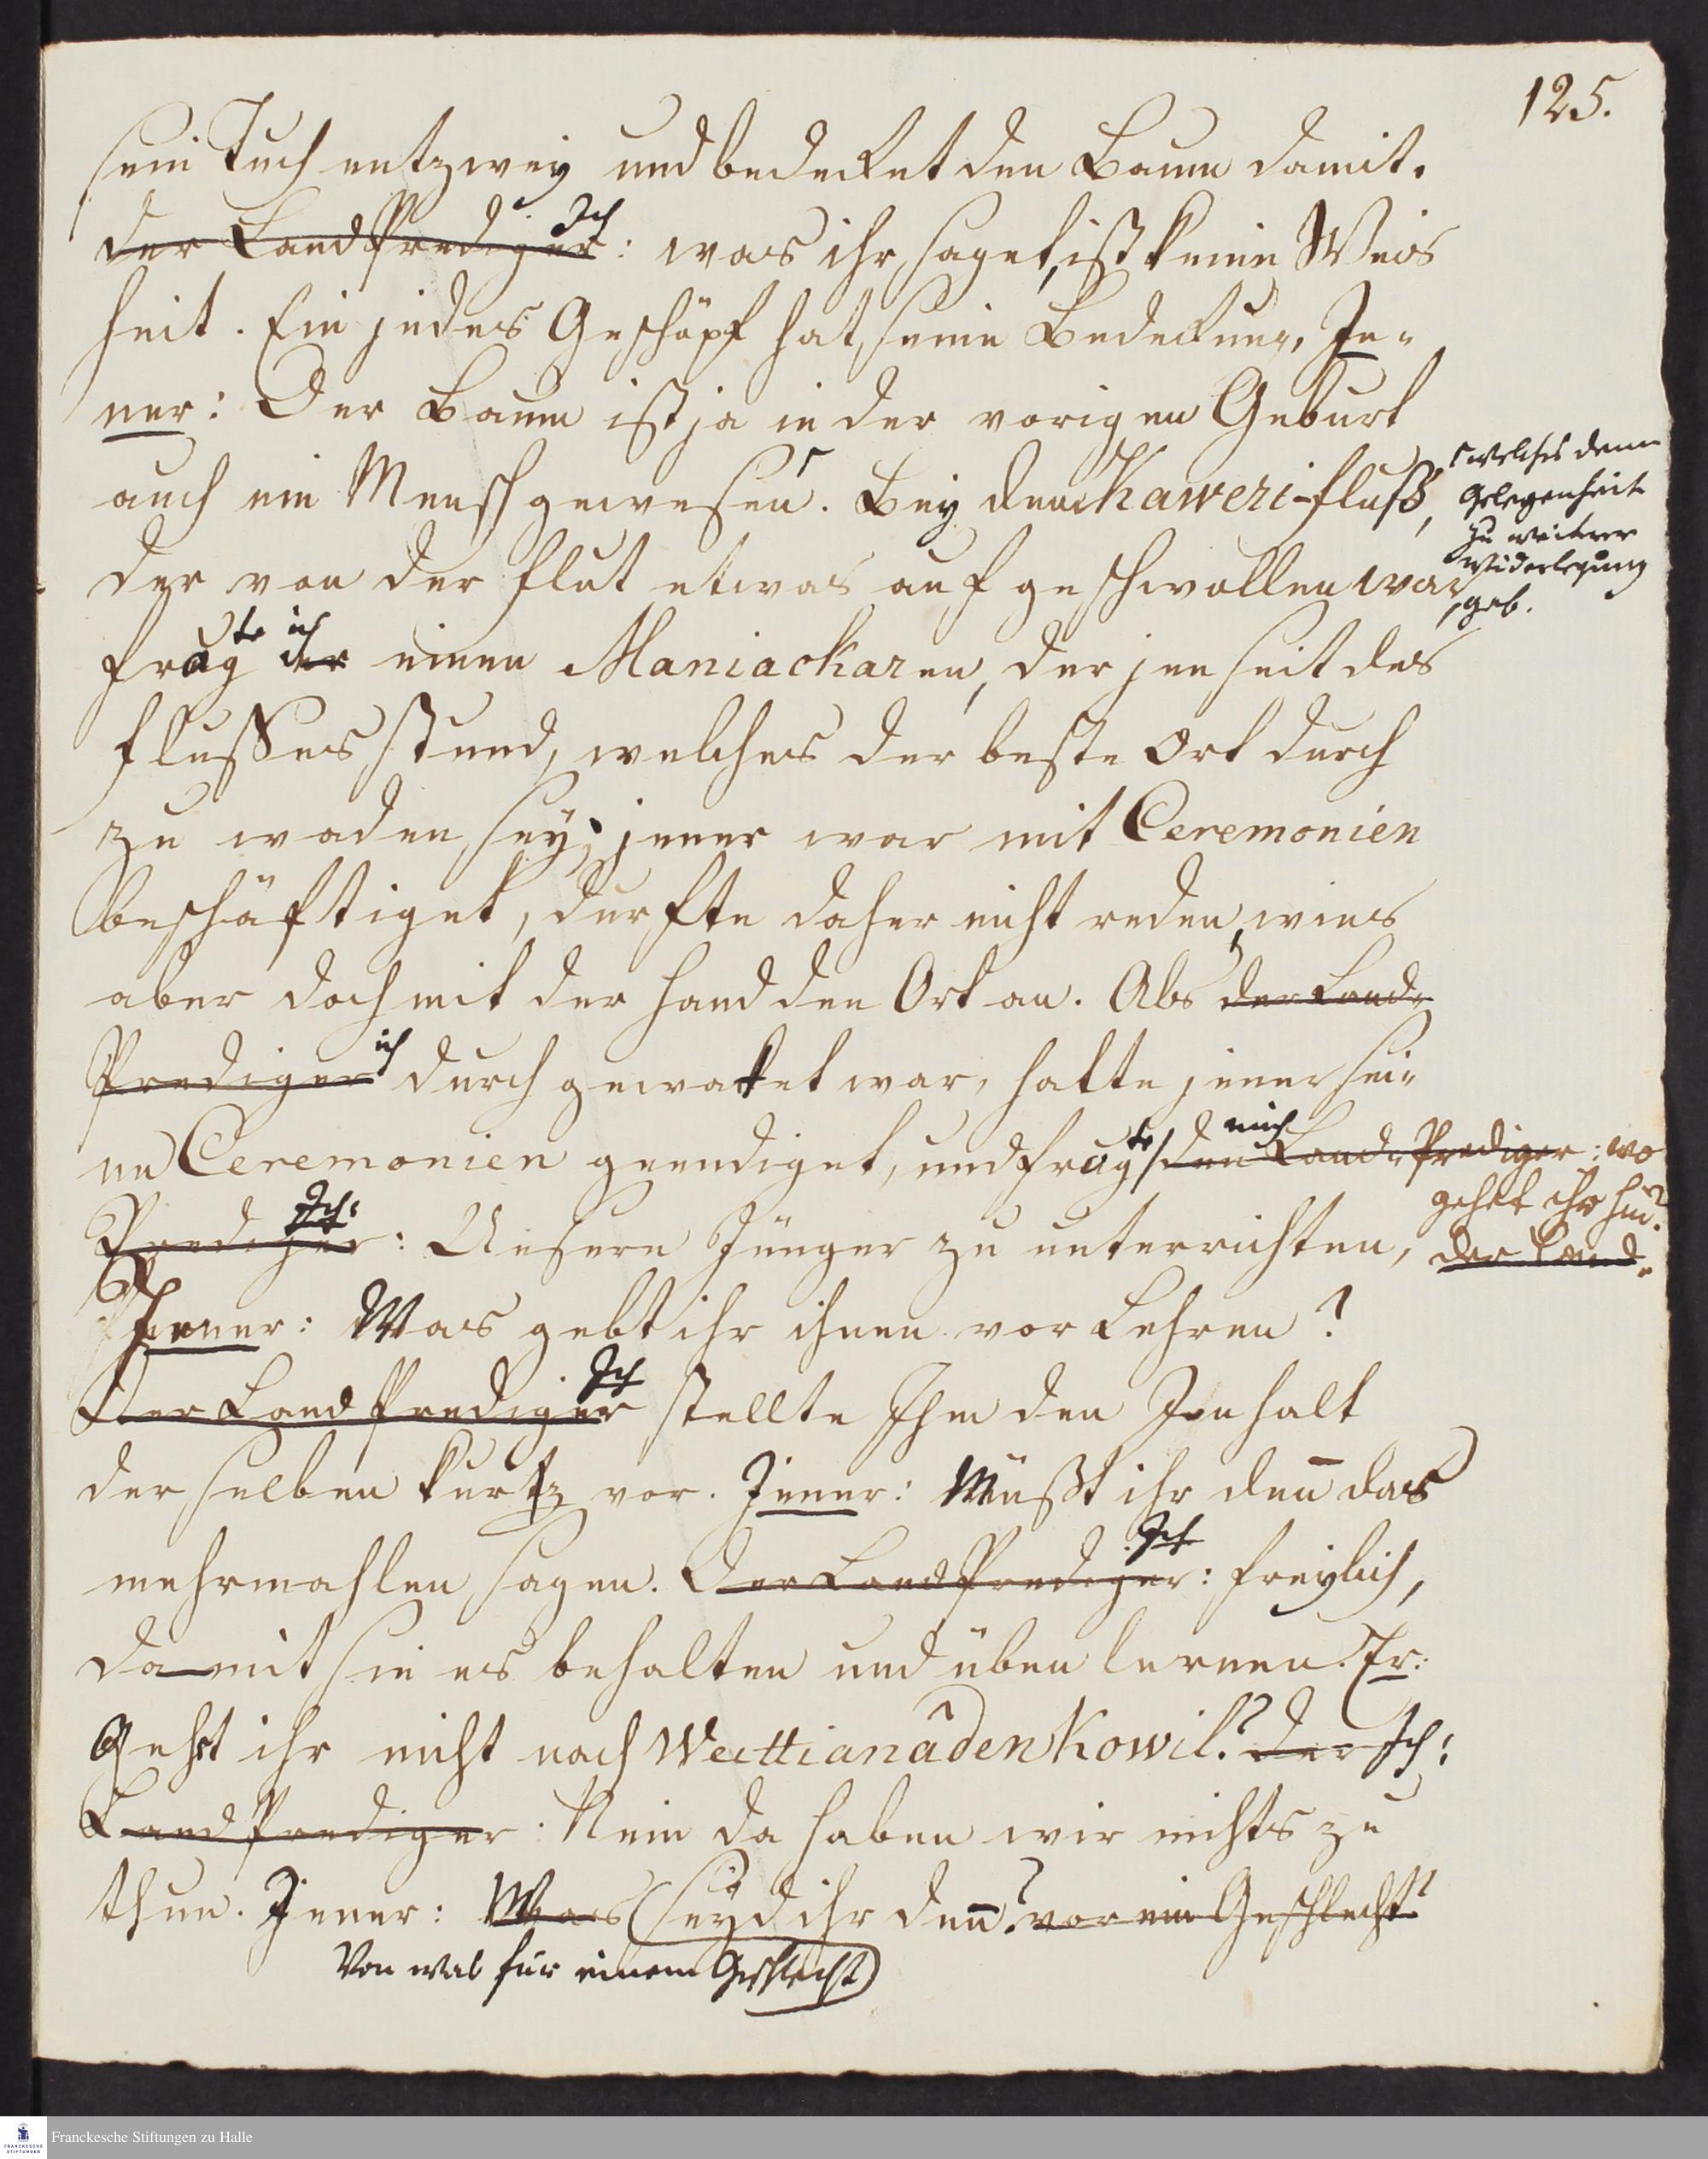 125.
sein Tuch entzwey und bedecket den Baum damit.
der LandPrediger Ich: was ihr saget, ist keine Weis
heit. Ein jedes Geschöpf hat seine Bedeckung, Je-
ner: Der Baum ist ja in der vorigen Geburt
auch ein Mensch gewesen. Bey dem Kaweri-fluß,
welches denn
Gelegenheit
zu weiterer
Widerlegung
gab.
der von der flut etwas aufgeschwollen war,
fragte ich der einen Maniackaren, der jenseit des
flusses stund, welches der beste Ort durch
zu waden sey; jener war mit Ceremonien
beschäftiget, durfte daher nicht reden, wies
aber doch mit der hand den Ort an. Als der Land-
Prediger ich durchgewatet war, hatte jener sei-
ne Ceremonien geendiget, und fragte den Land-Prediger mich: wo
gehet ihr hin?
der Land-
Prediger Ich: Unsere Jünger zu unterrichten,
Jener: Was gebt ihr ihnen vor Lehren?
Der LandPrediger Ich stellte Ihm den Innhalt
derselben kurtz vor. Jener: Müßt ihr denn das
mehrmahlen sagen. Der LandPrediger Ich: freylich,
damit sie es behalten und üben lernen. Er:
Geht ihr nicht nach Weittianâdenkowil? Der Ich:
LandPrediger: Nein da haben wir nichts zu
thun. Jener: Was seyd ihr denn? vor ein Geschlecht?
Von was für einem Geschlecht
Franckesche Stiftungen zu Halle